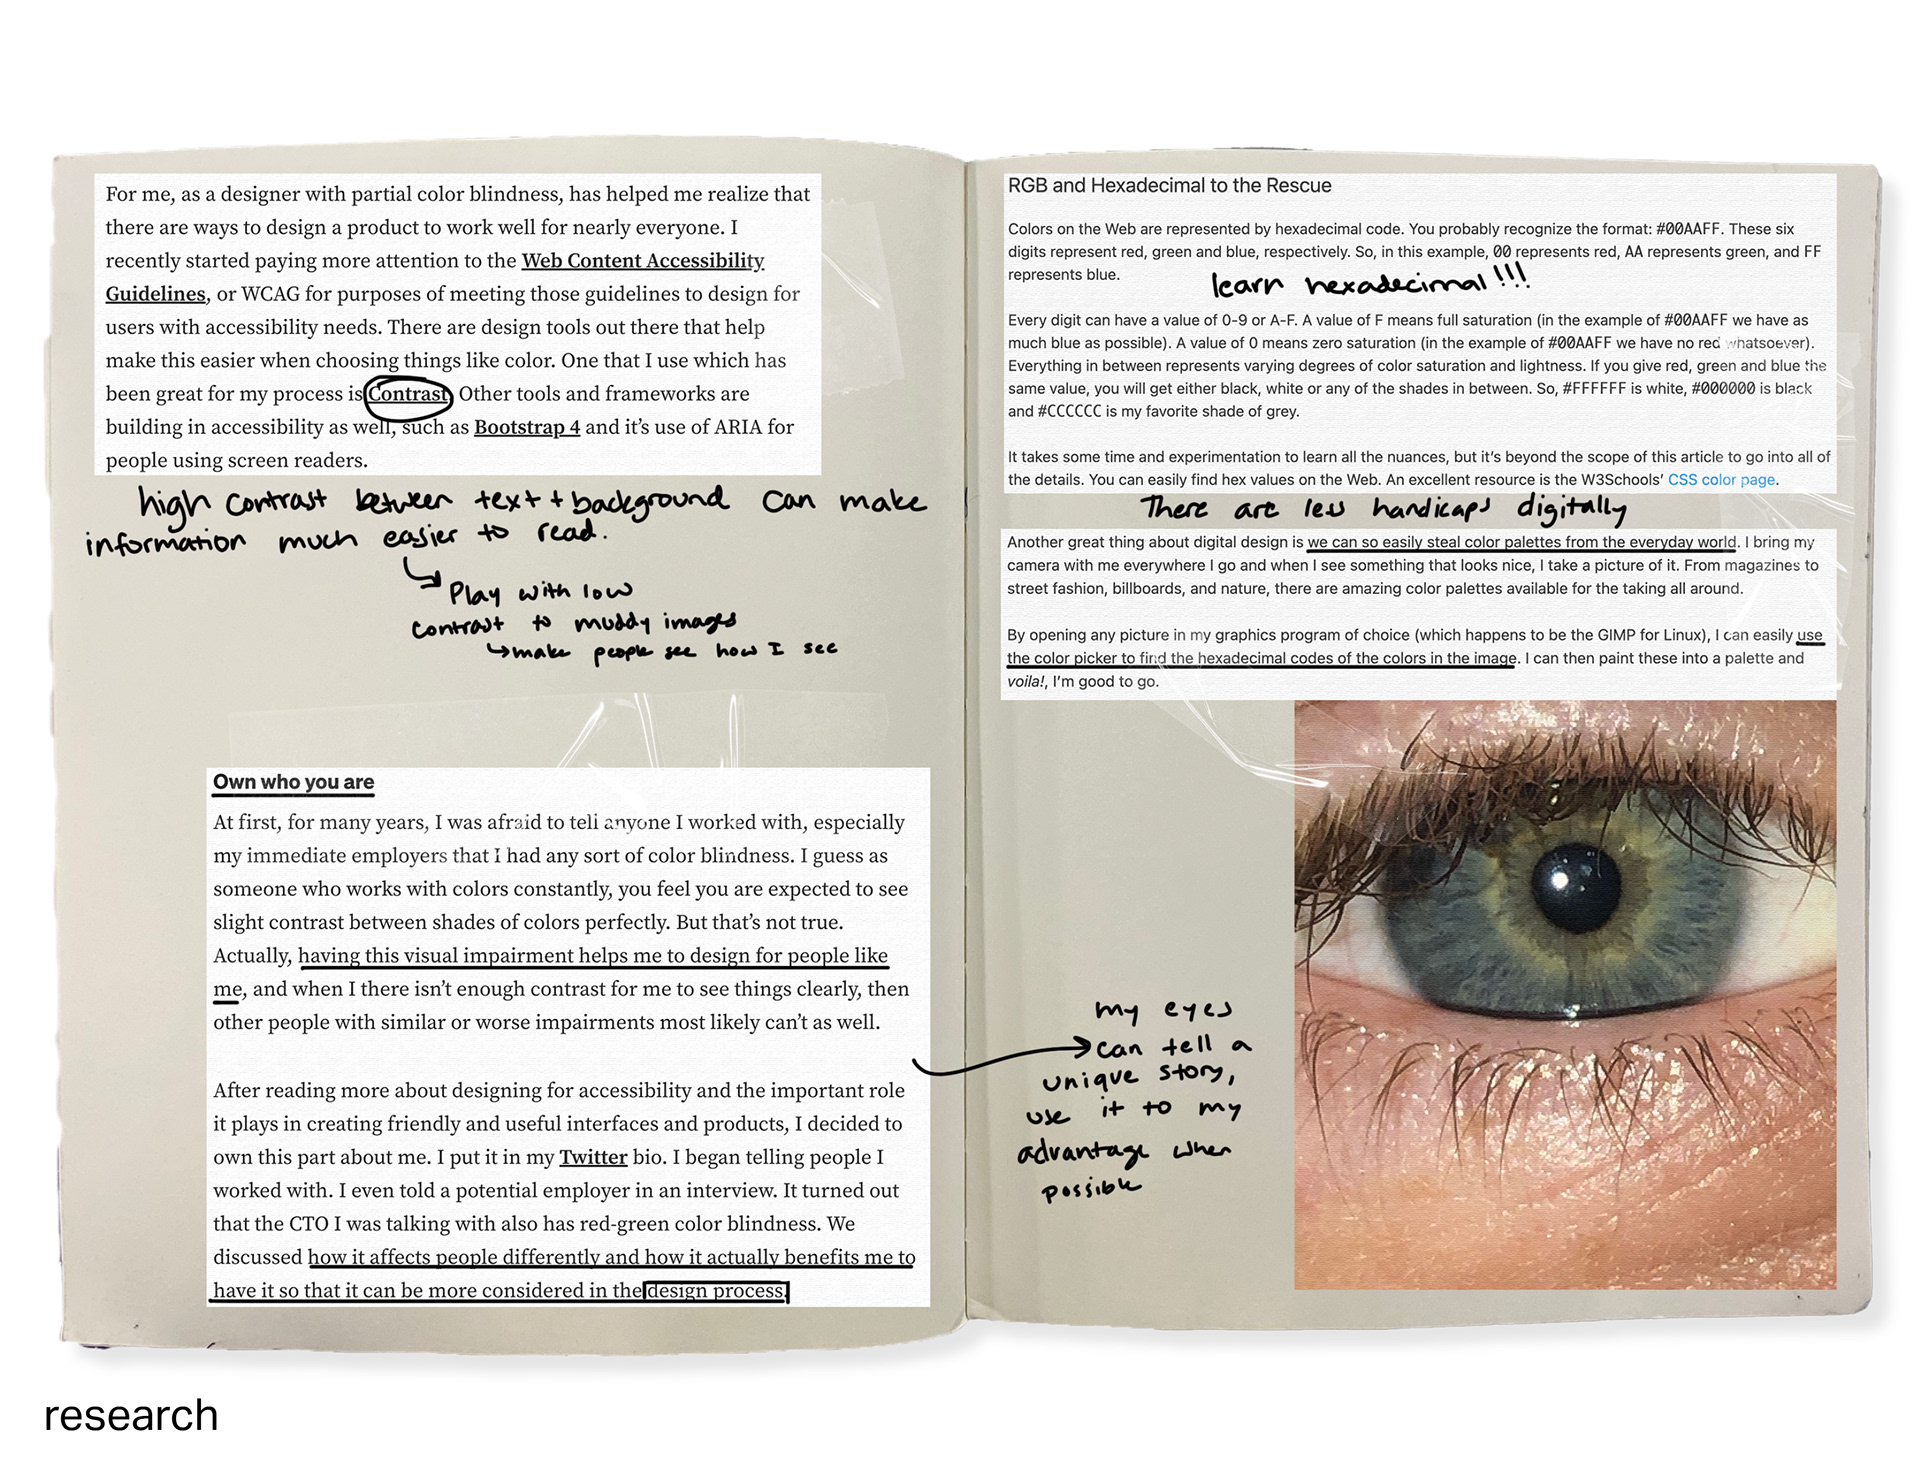 For me, as a designer with partial color blindness, has helped me realize that
there are ways to design a product to work well for nearly everyone. I
recently started paying more attention to the Web Content Accessibility
Guidelines, or WCAG for purposes of meeting those guidelines to design for
users with accessibility needs. There are design tools out there that help
make this easier when choosing things like color. One that I use which has
been great for my process is Contrast. Other tools and frameworks are
building in accessibility as well, such as Bootstrap 4 and it's use of ARIA for
people using screen readers.
high contrast between text + background can make
information much easier to read.
Play with low
contrast to muddy images
make people see how I see
Own who you are
At first, for many years, I was afraid to tell anyone I worked with, especially
my immediate employers that I had any sort of color blindness. I guess as
someone who works with colors constantly, you feel you are expected to see
slight contrast between shades of colors perfectly. But that's not true.
Actually, having this visual impairment helps me to design for people like
me, and when I there isn't enough contrast for me to see things clearly, then
other people with similar or worse impairments most likely can't as well.
After reading more about designing for accessibility and the important role
it plays in creating friendly and useful interfaces and products, I decided to
own this part about me. I put it in my Twitter bio. I began telling people I
worked with. I even told a potential employer in an interview. It turned out
that the CTO I was talking with also has red-green color blindness. We
discussed how it affects people differently and how it actually benefits me to
have it so that it can be more considered in the design process.
RGB and Hexadecimal to the Rescue
Colors on the Web are represented by hexadecimal code. You probably recognize the format: #00AAFF. These six
digits represent red, green and blue, respectively. So, in this example, 00 represents red, AA represents green, and FF
represents blue.
learn hexadecimal!!!
Every digit can have a value of 0-9 or A-F. A value of F means full saturation (in the example of #00AAFF we have as
much blue as possible). A value of 0 means zero saturation (in the example of #00AAFF we have no red whatsoever).
Everything in between represents varying degrees of color saturation and lightness. If you give red, green and blue the
same value, you will get either black, white or any of the shades in between. So, #FFFFFF is white, #000000 is black
and #CCCCCC is my favorite shade of grey.
It takes some time and experimentation to learn all the nuances, but it's beyond the scope of this article to go into all of
the details. You can easily find hex values on the Web. An excellent resource is the W3Schools' CSS color page.
There are less handicaps digitally
Another great thing about digital design is we can so easily steal color palettes from the everyday world. I bring my
camera with me everywhere I go and when I see something that looks nice, I take a picture of it. From magazines to
street fashion, billboards, and nature, there are amazing color palettes available for the taking all around.
By opening any picture in my graphics program of choice (which happens to be the GIMP for Linux), I can easily use
the color picker to find the hexadecimal codes of the colors in the image. I can then paint these into a palette and
voila!, I'm good to go.
my eyes
can tell a
unique story,
use it to my
advantage when
possible
research